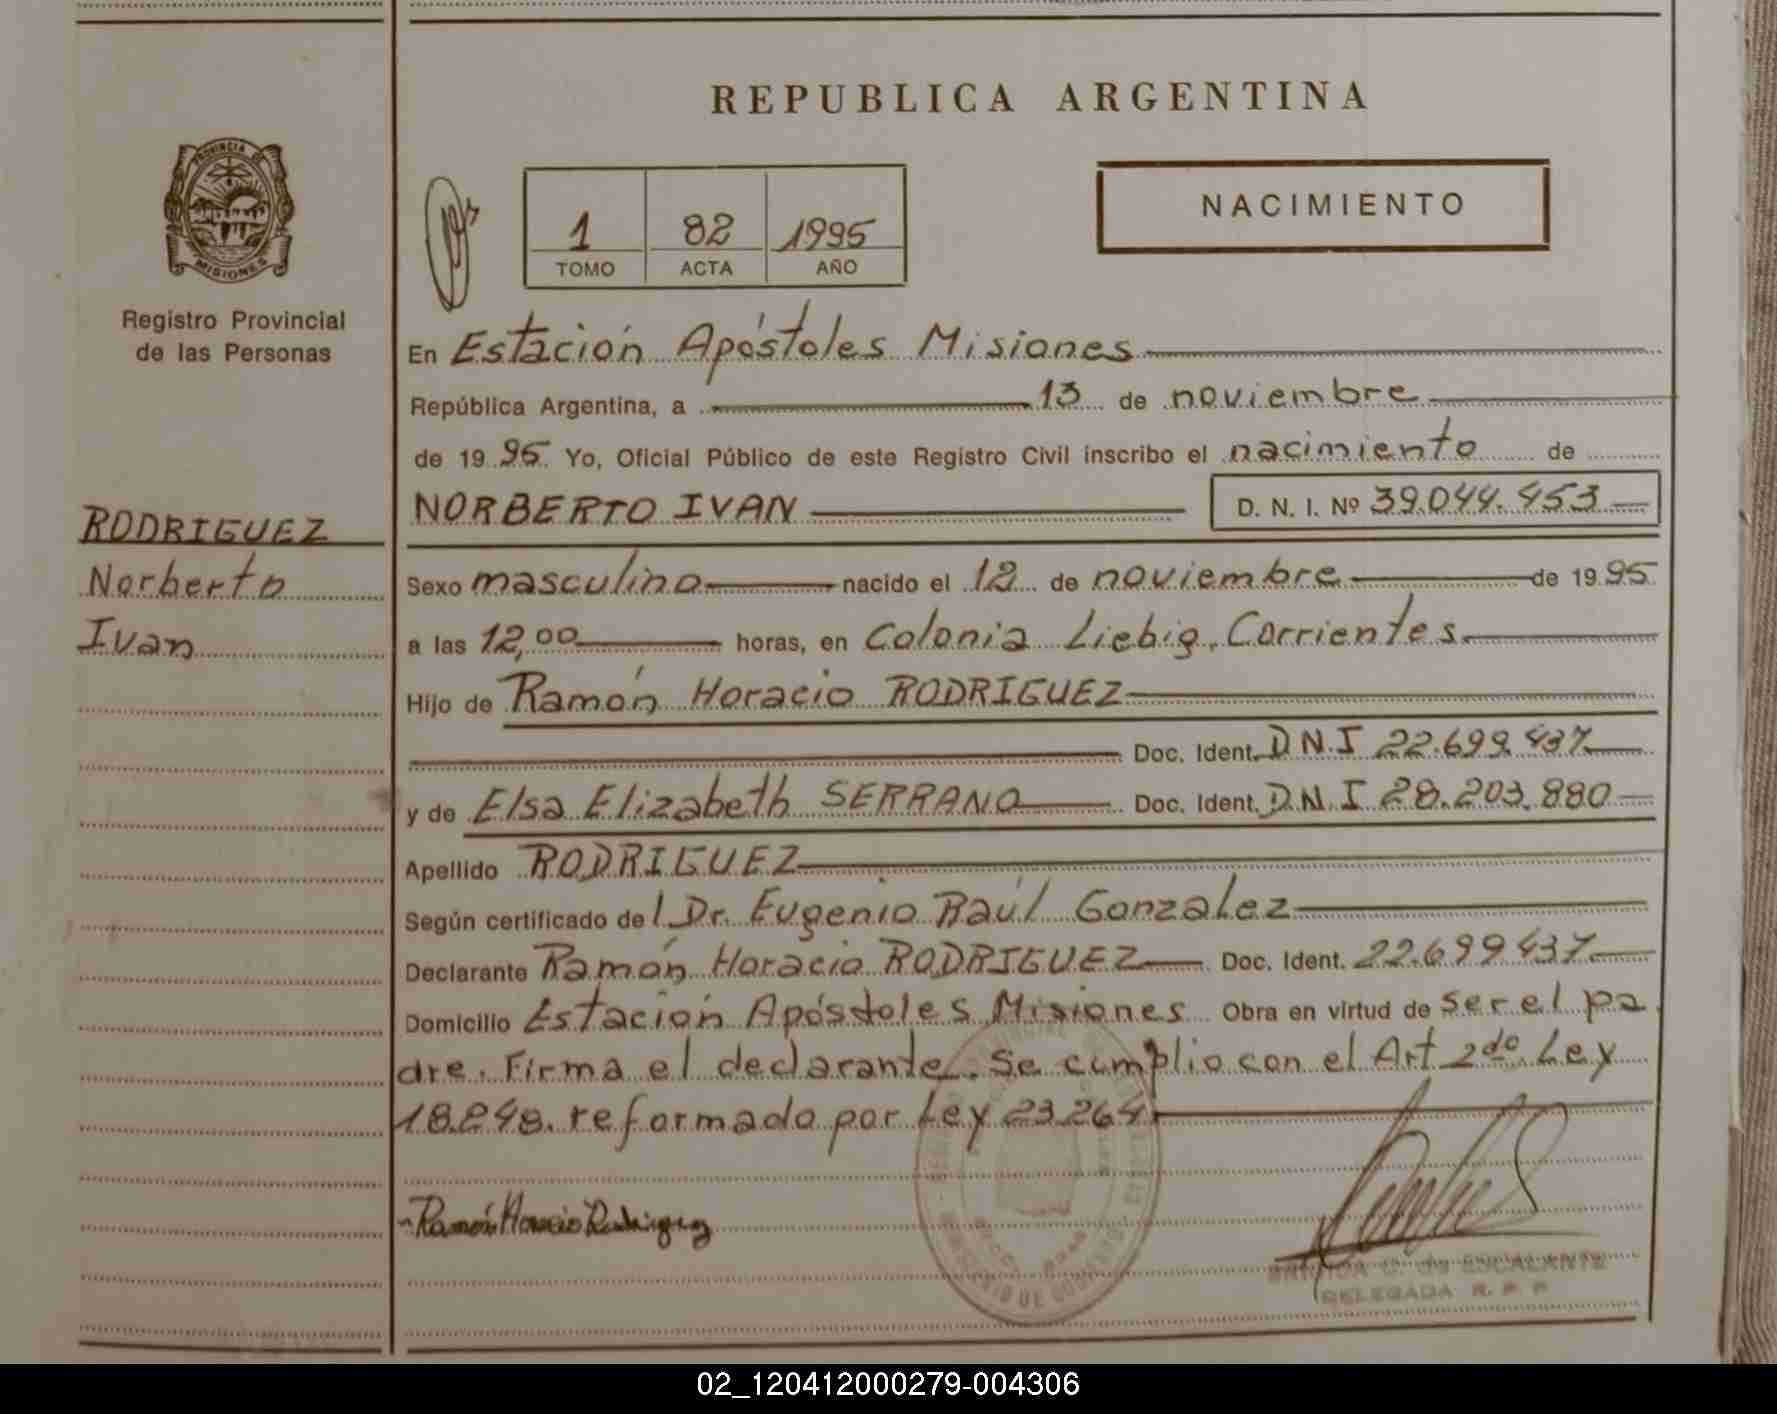 REPUBLICA ARGENTINA
PROVINCIA DE
MISIONES
Registro Provincial
de las Personas
1 82 1995
TOMO ACTA AÑO
NACIMIENTO
En Estación Apóstoles Misiones
República Argentina, a 13 de noviembre
de 1995 Yo, Oficial Público de este Registro Civil inscribo el nacimiento de
NORBERTO IVAN D. N. I. Nº 39.044.453
RODRIGUEZ
Norberto
Ivan
Sexo masculino nacido el 12 de noviembre de 1995
a las 12,00 horas, en Colonia Liebig, Corrientes.
Hijo de Ramón Horacio RODRIGUEZ
Doc. Ident. D.N.I 22.699.437
y de Elsa Elizabeth SERRANO Doc. Ident. D.N.I 28.203.880
Apellido RODRIGUEZ
Según certificado del Dr. Eugenio Raúl Gonzalez
Declarante Ramón Horacio RODRIGUEZ Doc. Ident. 22.699437
Domicilio Estación Apóstoles Misiones Obra en virtud de ser el pa
dre. Firma el declarante. Se cumplio con el Art 2do. Ley
18.248. reformado por Ley 23.264
Ramón Horacio Rodriguez
BRIGIDA C. de ESCALANTE
DELEGADA R. P. P.
02_120412000279-004306